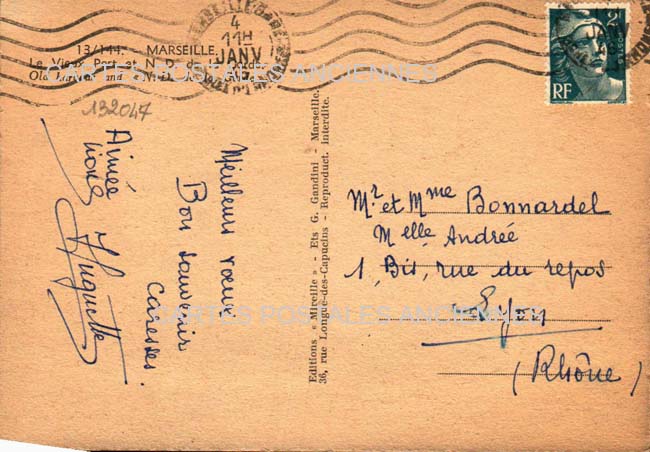 4
11H
JANV
13/144. - MARSEILLE.
Le Vieux Port et N.-D. de la Garde
Old Harbour and N.-D. de la Garde
CARTES POSTALES ANCIENNES
132047
Meilleurs vœux
Bon souvenir
Caresses.
Aimée
Huguette
Editions « Mireille » - Ets G. Gandini - Marseille.
36, rue Longue-des-Capucins - Reproduct. interdite.
2F
POSTES
RF
Mr et Mme Bonnardel
Melle Andrée
1, Bis, rue du repos
Lyon
(Rhône)
CARTES POSTALES ANCIENNES